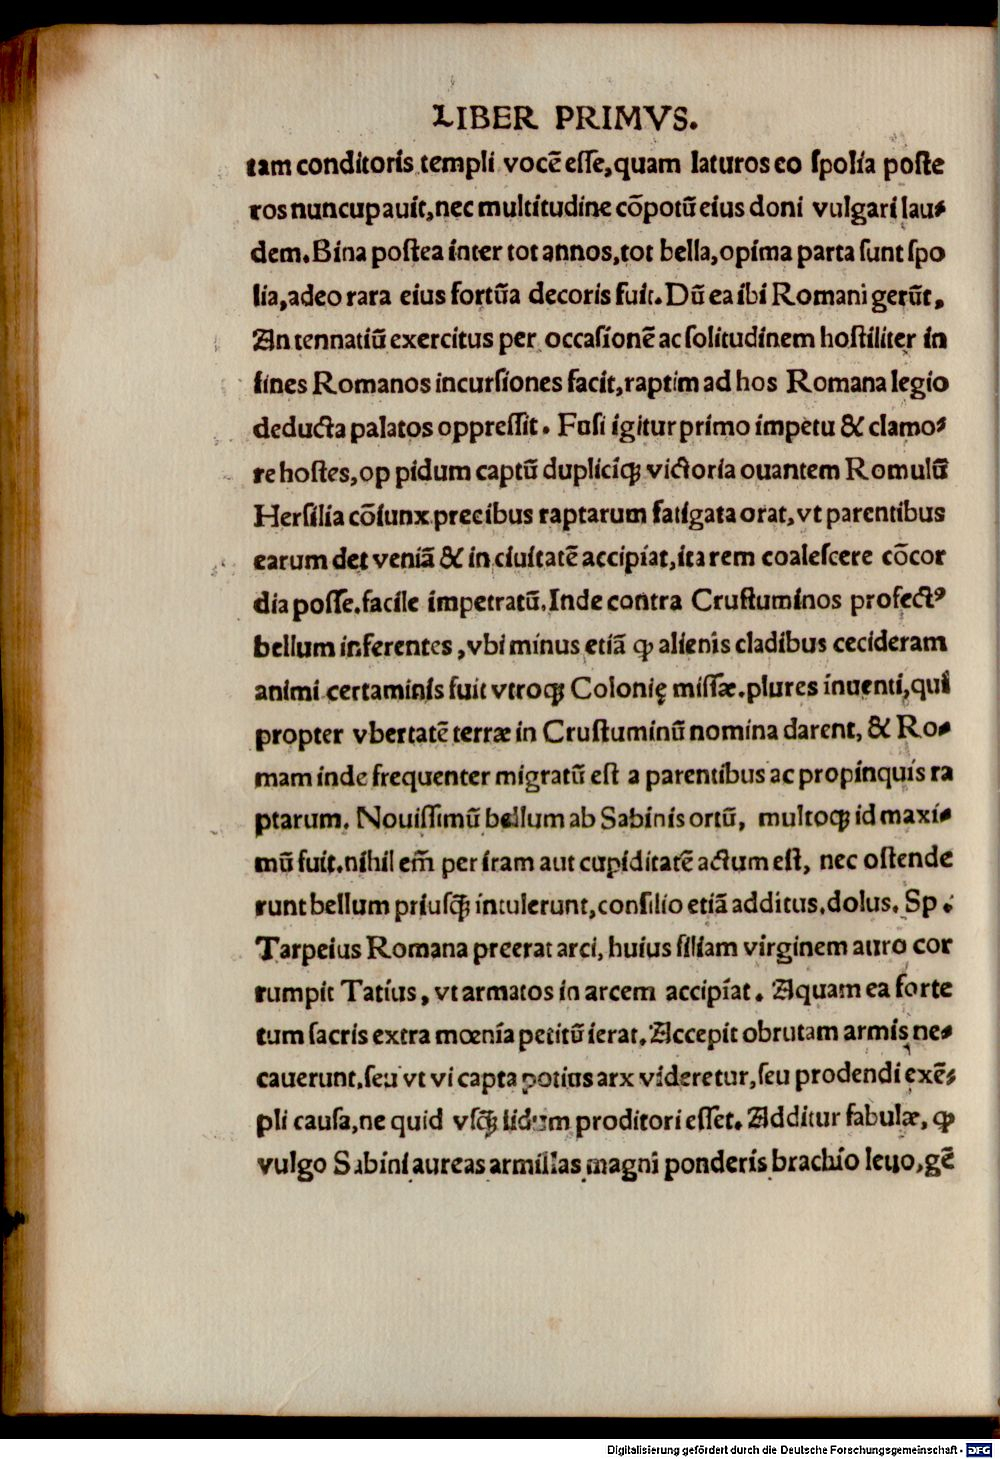 LIBER PRIMVS.
tam conditoris templi vocē esse, quam laturos eo spolia poste
ros nuncupauit, nec multitudine cōpotū eius doni vulgari lau⸗
dem. Bina postea inter tot annos, tot bella, opima parta sunt spo
lia, adeo rara eius fortūa decoris fuit. Dū ea ibi Romani gerūt,
Antennatiū exercitus per occasionē ac solitudinem hostiliter in
fines Romanos incursiones facit, raptim ad hos Romana legio
deducta palatos oppressit. Fusi igitur primo impetu & clamo⸗
re hostes, oppidum captū dupliciq́ victoria ouantem Romulū
Hersilia cōiunx precibus raptarum fatigata orat, vt parentibus
earum det veniā & in ciuitatē accipiat, ita rem coalescere cōcor
dia posse. facile impetratū. Inde contra Crustuminos profectꝰ
bellum inferentes, vbi minus etiā ꝙ alienis cladibus cecideram
animi certaminis fuit vtroq́ Colonię missæ. plures inuenti, qui
propter vbertatē terræ in Crustuminū nomina darent, & Ro⸗
mam inde frequenter migratū est a parentibus ac propinquis ra
ptarum. Nouissimū bellum ab Sabinis ortū, multoq́ id maxi⸗
mū fuit. nihil em̄ per iram aut cupiditatē actum est, nec ostende
runt bellum priusq̄ intulerunt, consilio etiā additus. dolus. Sp.
Tarpeius Romana preerat arci, huius filiam virginem auro cor
rumpit Tatius, vt armatos in arcem accipiat. Aquam ea forte
tum sacris extra mœnia petitū ierat. Accepit obrutam armis ne⸗
cauerunt. seu vt vi capta potius arx videretur, seu prodendi exē⸗
pli causa, ne quid vsq̄ fidum proditori esset. Additur fabulæ, ꝙ
vulgo Sabini aureas armillas magni ponderis brachio leuo, gē
Digitalisierung gefördert durch die Deutsche Forschungsgemeinschaft - DFG